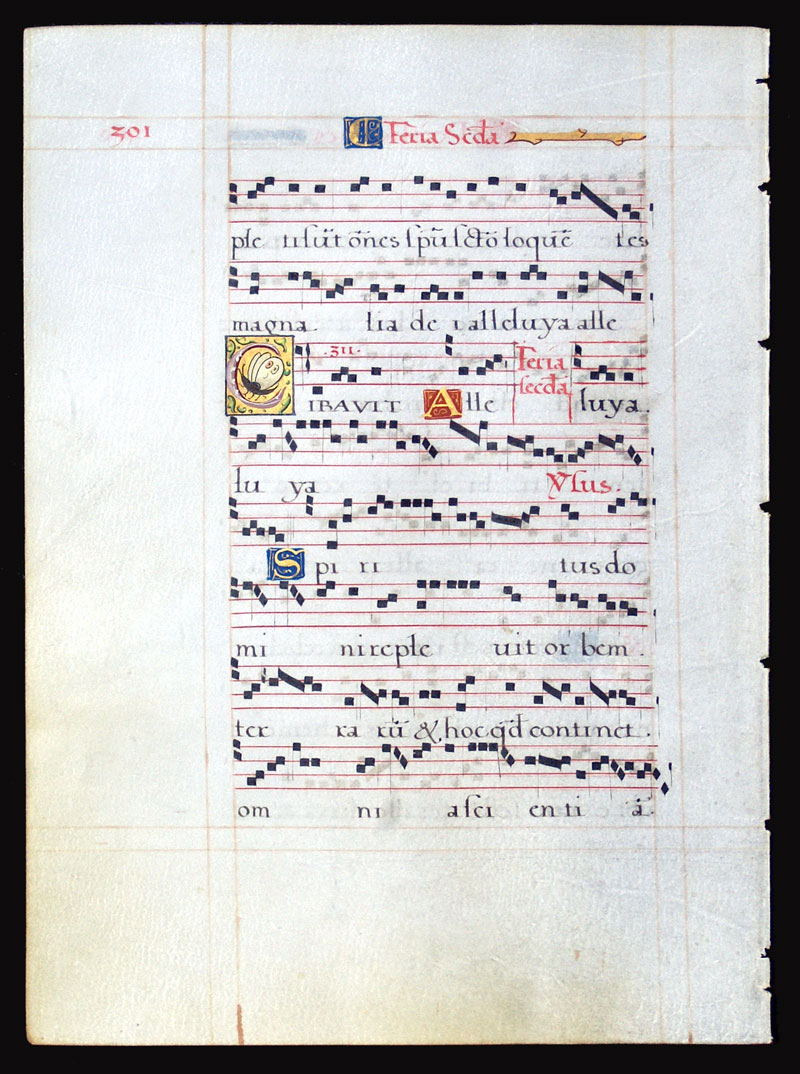 301
Feria Scd̃a
ple ti sũt õnes spũ sctõ loquẽ tes
magna. lia de i alleluya alle
CIBAVIT .311. Alle Feria secd̃a luya.
lu ya ℣sus
Spi ri tus do
mi ni reple uit or bem.
ter ra rũ & hoc qd̃ continet.
om ni a sci en ti ã.